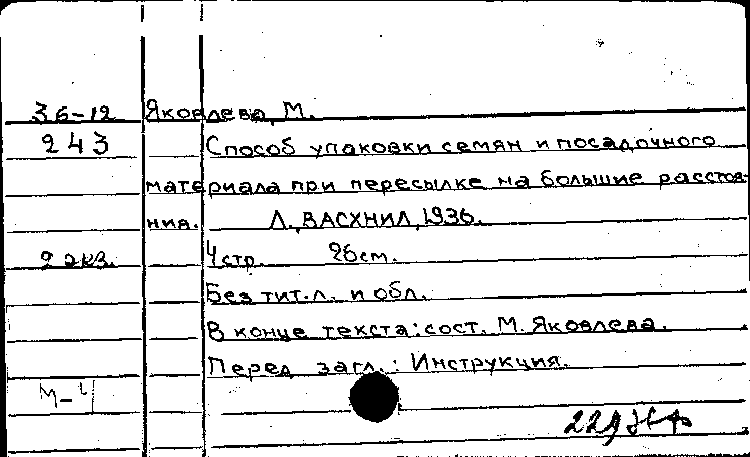 36-12 Яковлева, М.
243 Способ упаковки семян и посадочного
материала при пересылке на большие расстоя-
ния. Л., ВАСХНИЛ, 1936.
2 экз. 4 стр. 26 см.
Без тит.л. и обл.
В конце текста: сост. М. Яковлева.
Перед загл.: Инструкция.
М-4